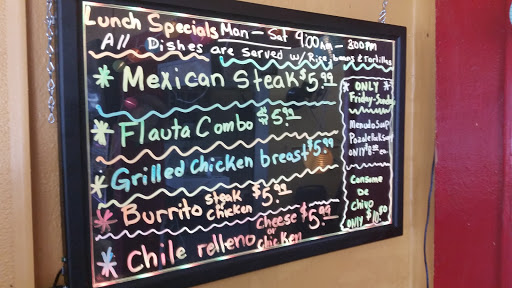 Lunch Specials Mon - Sat 9:00am - 3:00PM
All Dishes are served w/ Rice, beans & tortillas
* Mexican Steak $5.99
* Flauta Combo $5.99
* Grilled Chicken breast $5.99
* Burrito steak chicken $5.99
* Chile relleno cheese or chicken $5.99
* ONLY *
Friday-Sunday
Menudo Soup
Pozole Pork Soup
ONLY
Consome
De
Chivo
ONLY $10.50